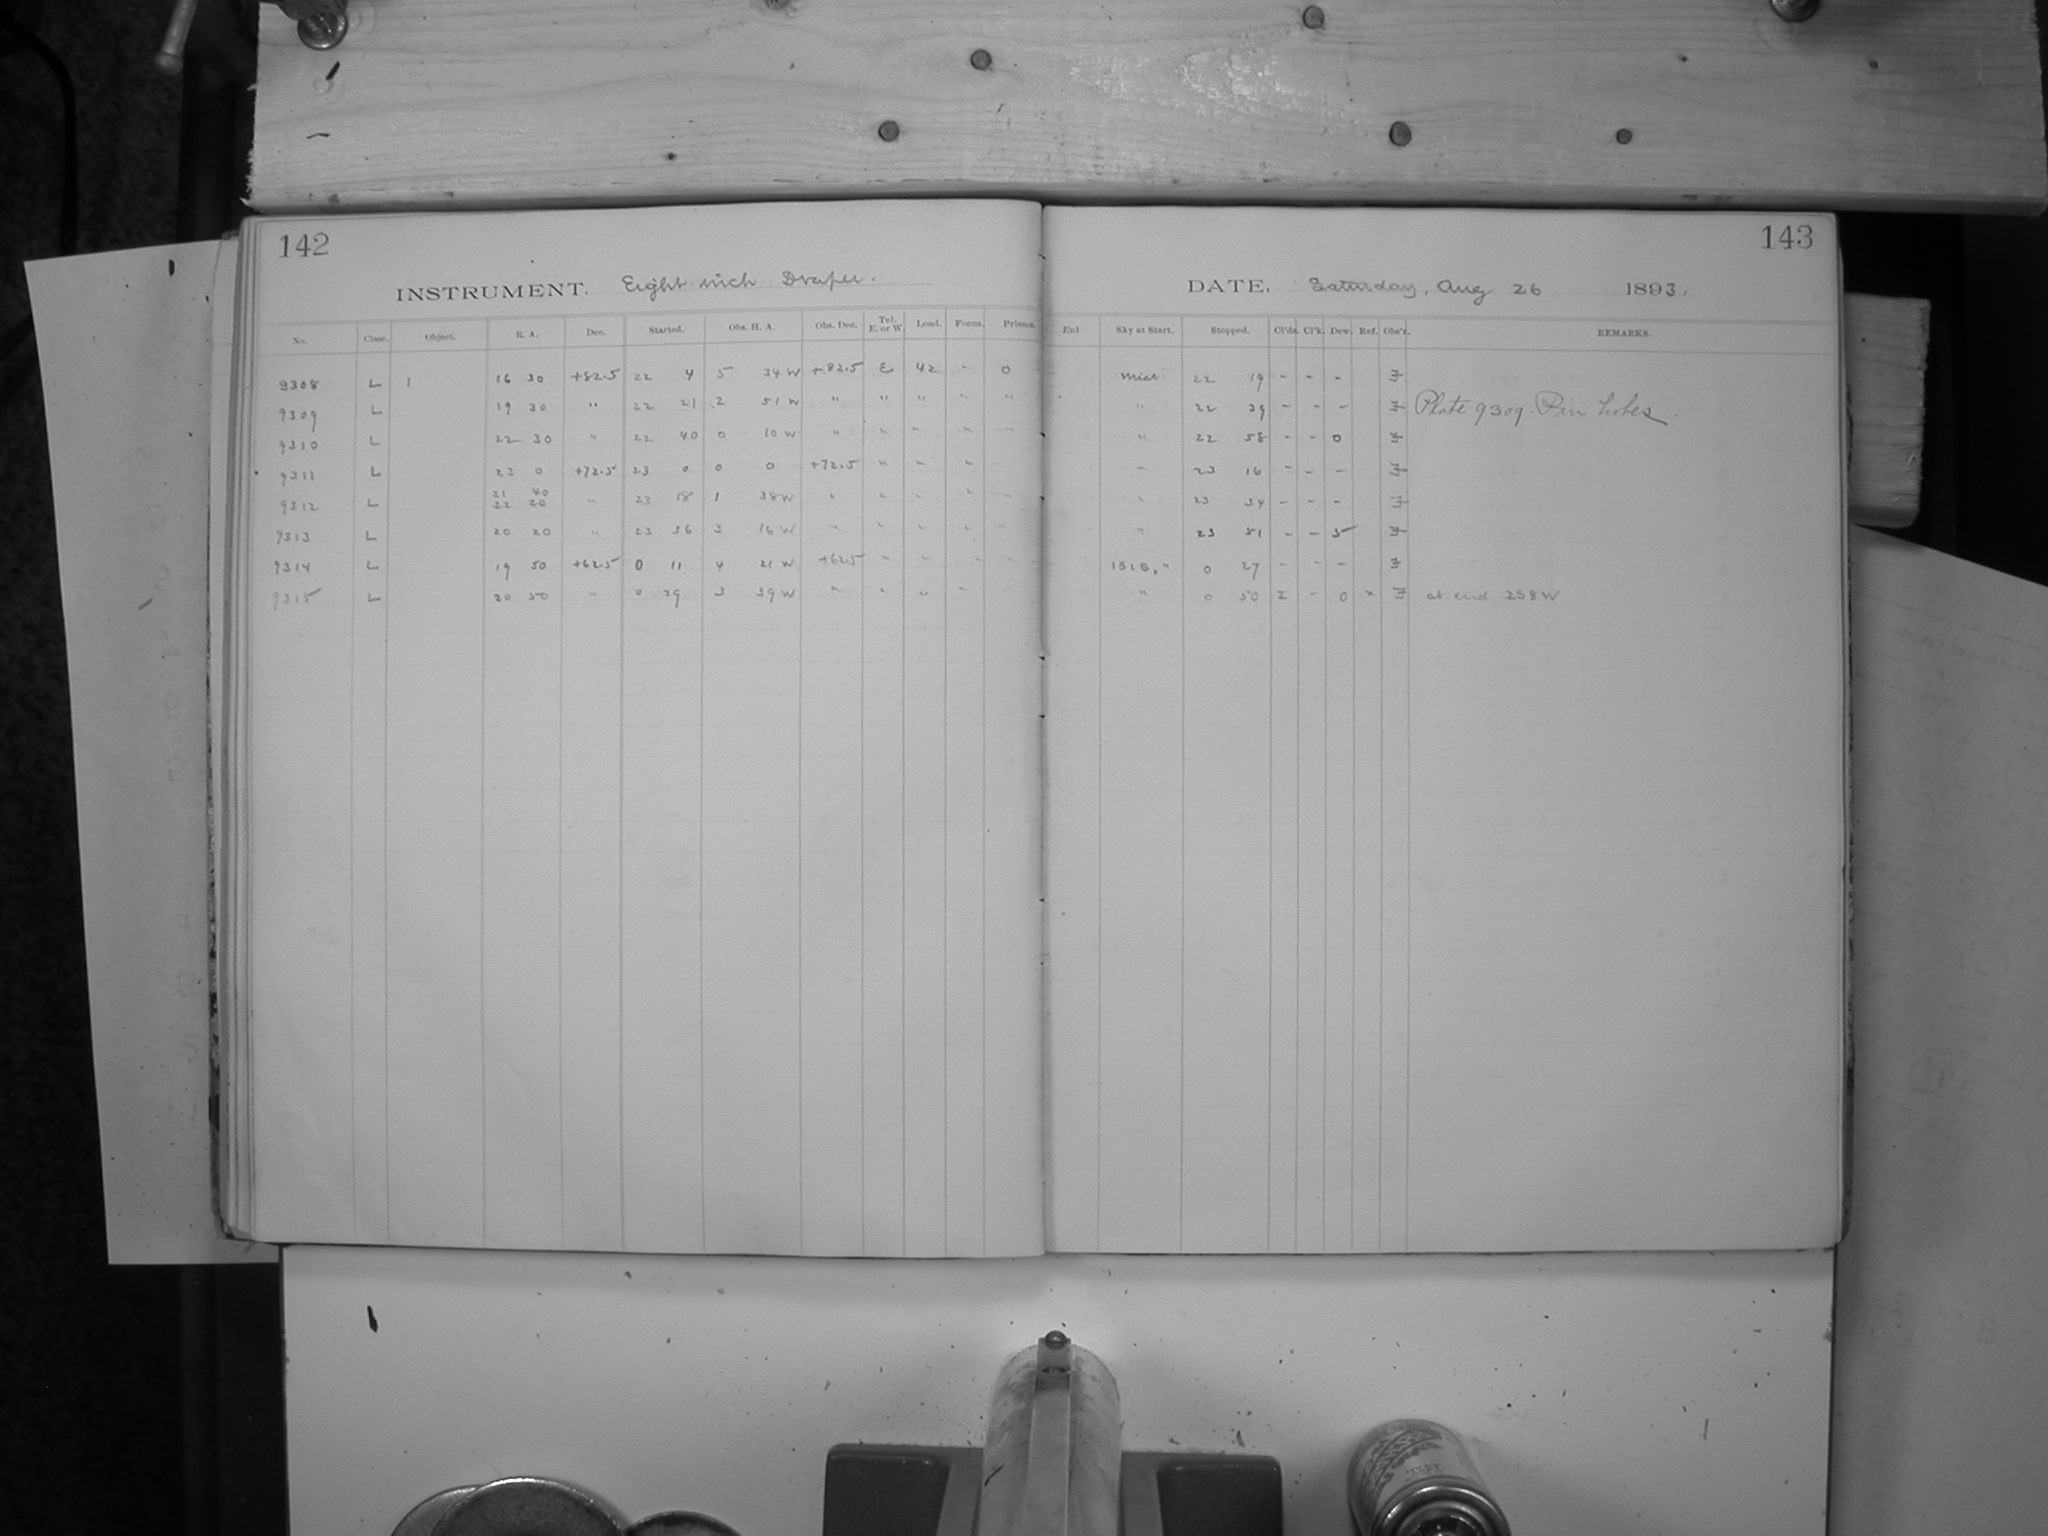 142
INSTRUMENT. Eight inch Draper.
No. Class. Object. R. A. Dec. Started. Obs. H. A. Obs. Dec. Tel. E. or W. Lond. Focus. Prisms.
9308 L 1 16 30 +82.5 22 4 5 34 W +82.5 E 42 - 0
9309 L 19 30 " 22 21 2 51 W " " " " "
9310 L 22 30 " 22 40 0 10 W " " " " "
9311 L 23 0 +72.5 23 0 0 0 +72.5 " " "
9312 L 21 40 22 20 " 23 18 1 38 W " " " " "
9313 L 20 20 " 23 36 3 16 W " " " " "
9314 L 19 50 +62.5 0 11 4 21 W +62.5 " " " "
9315 L 20 50 " 0 29 3 39 W " " " " "
143
DATE. Saturday, Aug 26 1893.
End Sky at Start. Stopped. Cl'ds. Cl'k. Dew. Ref. Obs'r. REMARKS.
Mist 22 19 - - -
" 22 39 - - - Plate 9309. Pin holes.
" 22 58 - - 0
" 23 16 - - -
" 23 34 - - -
" 23 51 - - 5
" 0 27 - - -
" 0 50 2 - 0 x at end 2 58 W